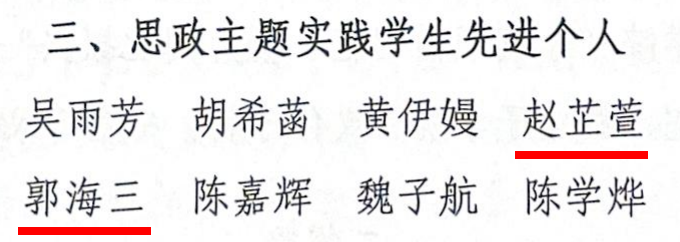 三、思政主题实践学生先进个人
吴雨芳 胡希菡 黄伊嫚 赵芷萱
郭海三 陈嘉辉 魏子航 陈学烨